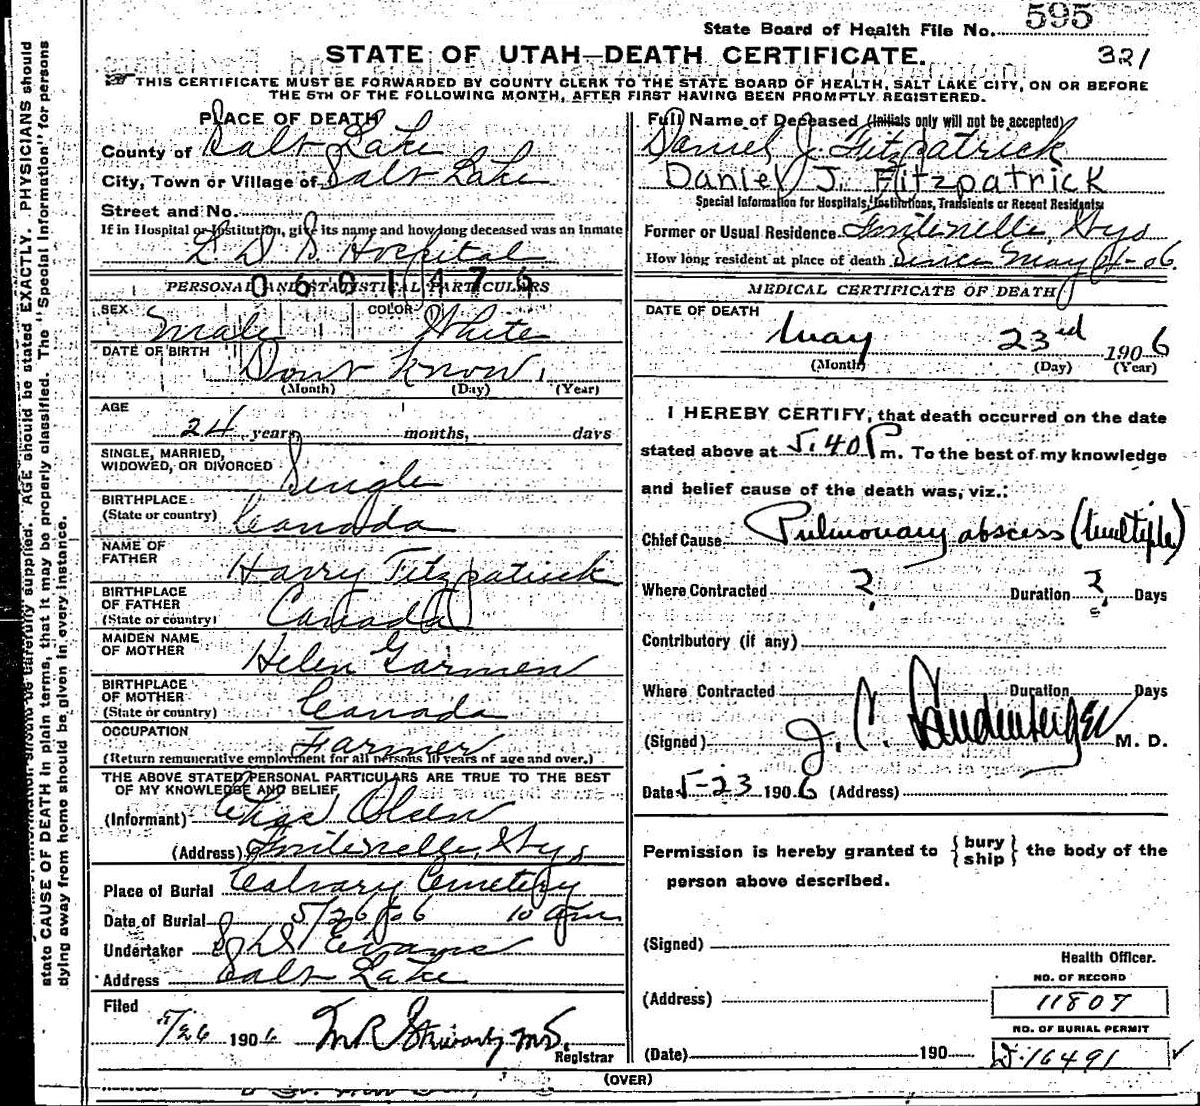 State Board of Health File No. 595
321
STATE OF UTAH—DEATH CERTIFICATE.
THIS CERTIFICATE MUST BE FORWARDED BY COUNTY CLERK TO THE STATE BOARD OF HEALTH, SALT LAKE CITY, ON OR BEFORE
THE 5TH OF THE FOLLOWING MONTH, AFTER FIRST HAVING BEEN PROMPTLY REGISTERED.
PLACE OF DEATH
County of Salt Lake
City, Town or Village of Salt Lake
Street and No.
If in Hospital or Institution, give its name and how long deceased was an Inmate
L D S Hospital
0601476
PERSONAL AND STATISTICAL PARTICULARS
SEX Male COLOR White
DATE OF BIRTH Dont Know.
(Month) (Day) (Year)
AGE
24 years, months, days
SINGLE, MARRIED,
WIDOWED, OR DIVORCED Single
BIRTHPLACE
(State or country) Canada
NAME OF
FATHER Harry Fitzpatrick
BIRTHPLACE
OF FATHER
(State or country) Canada
MAIDEN NAME
OF MOTHER Helen Garmen
BIRTHPLACE
OF MOTHER
(State or country) Canada
OCCUPATION Farmer
(Return remunerative employment for all persons 10 years of age and over.)
THE ABOVE STATED PERSONAL PARTICULARS ARE TRUE TO THE BEST
OF MY KNOWLEDGE AND BELIEF
(Informant) Chas Olsen
(Address) Fontenelle, Wyo
Place of Burial Calvary Cemetery
Date of Burial 5/26/06 10 am
Undertaker S D Evans
Address Salt Lake
Filed
5/26 1906 M R Stewart M.D.
Registrar
Full Name of Deceased (Initials only will not be accepted)
Daniel J. Fitzpatrick
Daniel J. Fitzpatrick
Special Information for Hospitals, Institutions, Transients or Recent Residents
Former or Usual Residence Fontenelle, Wyo
How long resident at place of death Since May 21-06.
MEDICAL CERTIFICATE OF DEATH
DATE OF DEATH
May 23rd 1906
(Month) (Day) (Year)
I HEREBY CERTIFY, that death occurred on the date
stated above at 5.40 P m. To the best of my knowledge
and belief cause of the death was, viz.:
Chief Cause Pulmonary abscess (multiple)
Where Contracted ? Duration ? Days
Contributory (if any)
Where Contracted Duration Days
(Signed) J. C. Landenberger M. D.
Date 5-23 1906 (Address)
Permission is hereby granted to {bury ship} the body of the
person above described.
(Signed)
Health Officer.
NO. OF RECORD
(Address) 11807
NO. OF BURIAL PERMIT
(Date) 190 D.16491 ✓
(OVER)
state CAUSE OF DEATH in plain terms, that it may be properly classified. The "Special Information" for persons
dying away from home should be given in every instance.
supplied. AGE should be stated EXACTLY. PHYSICIANS should